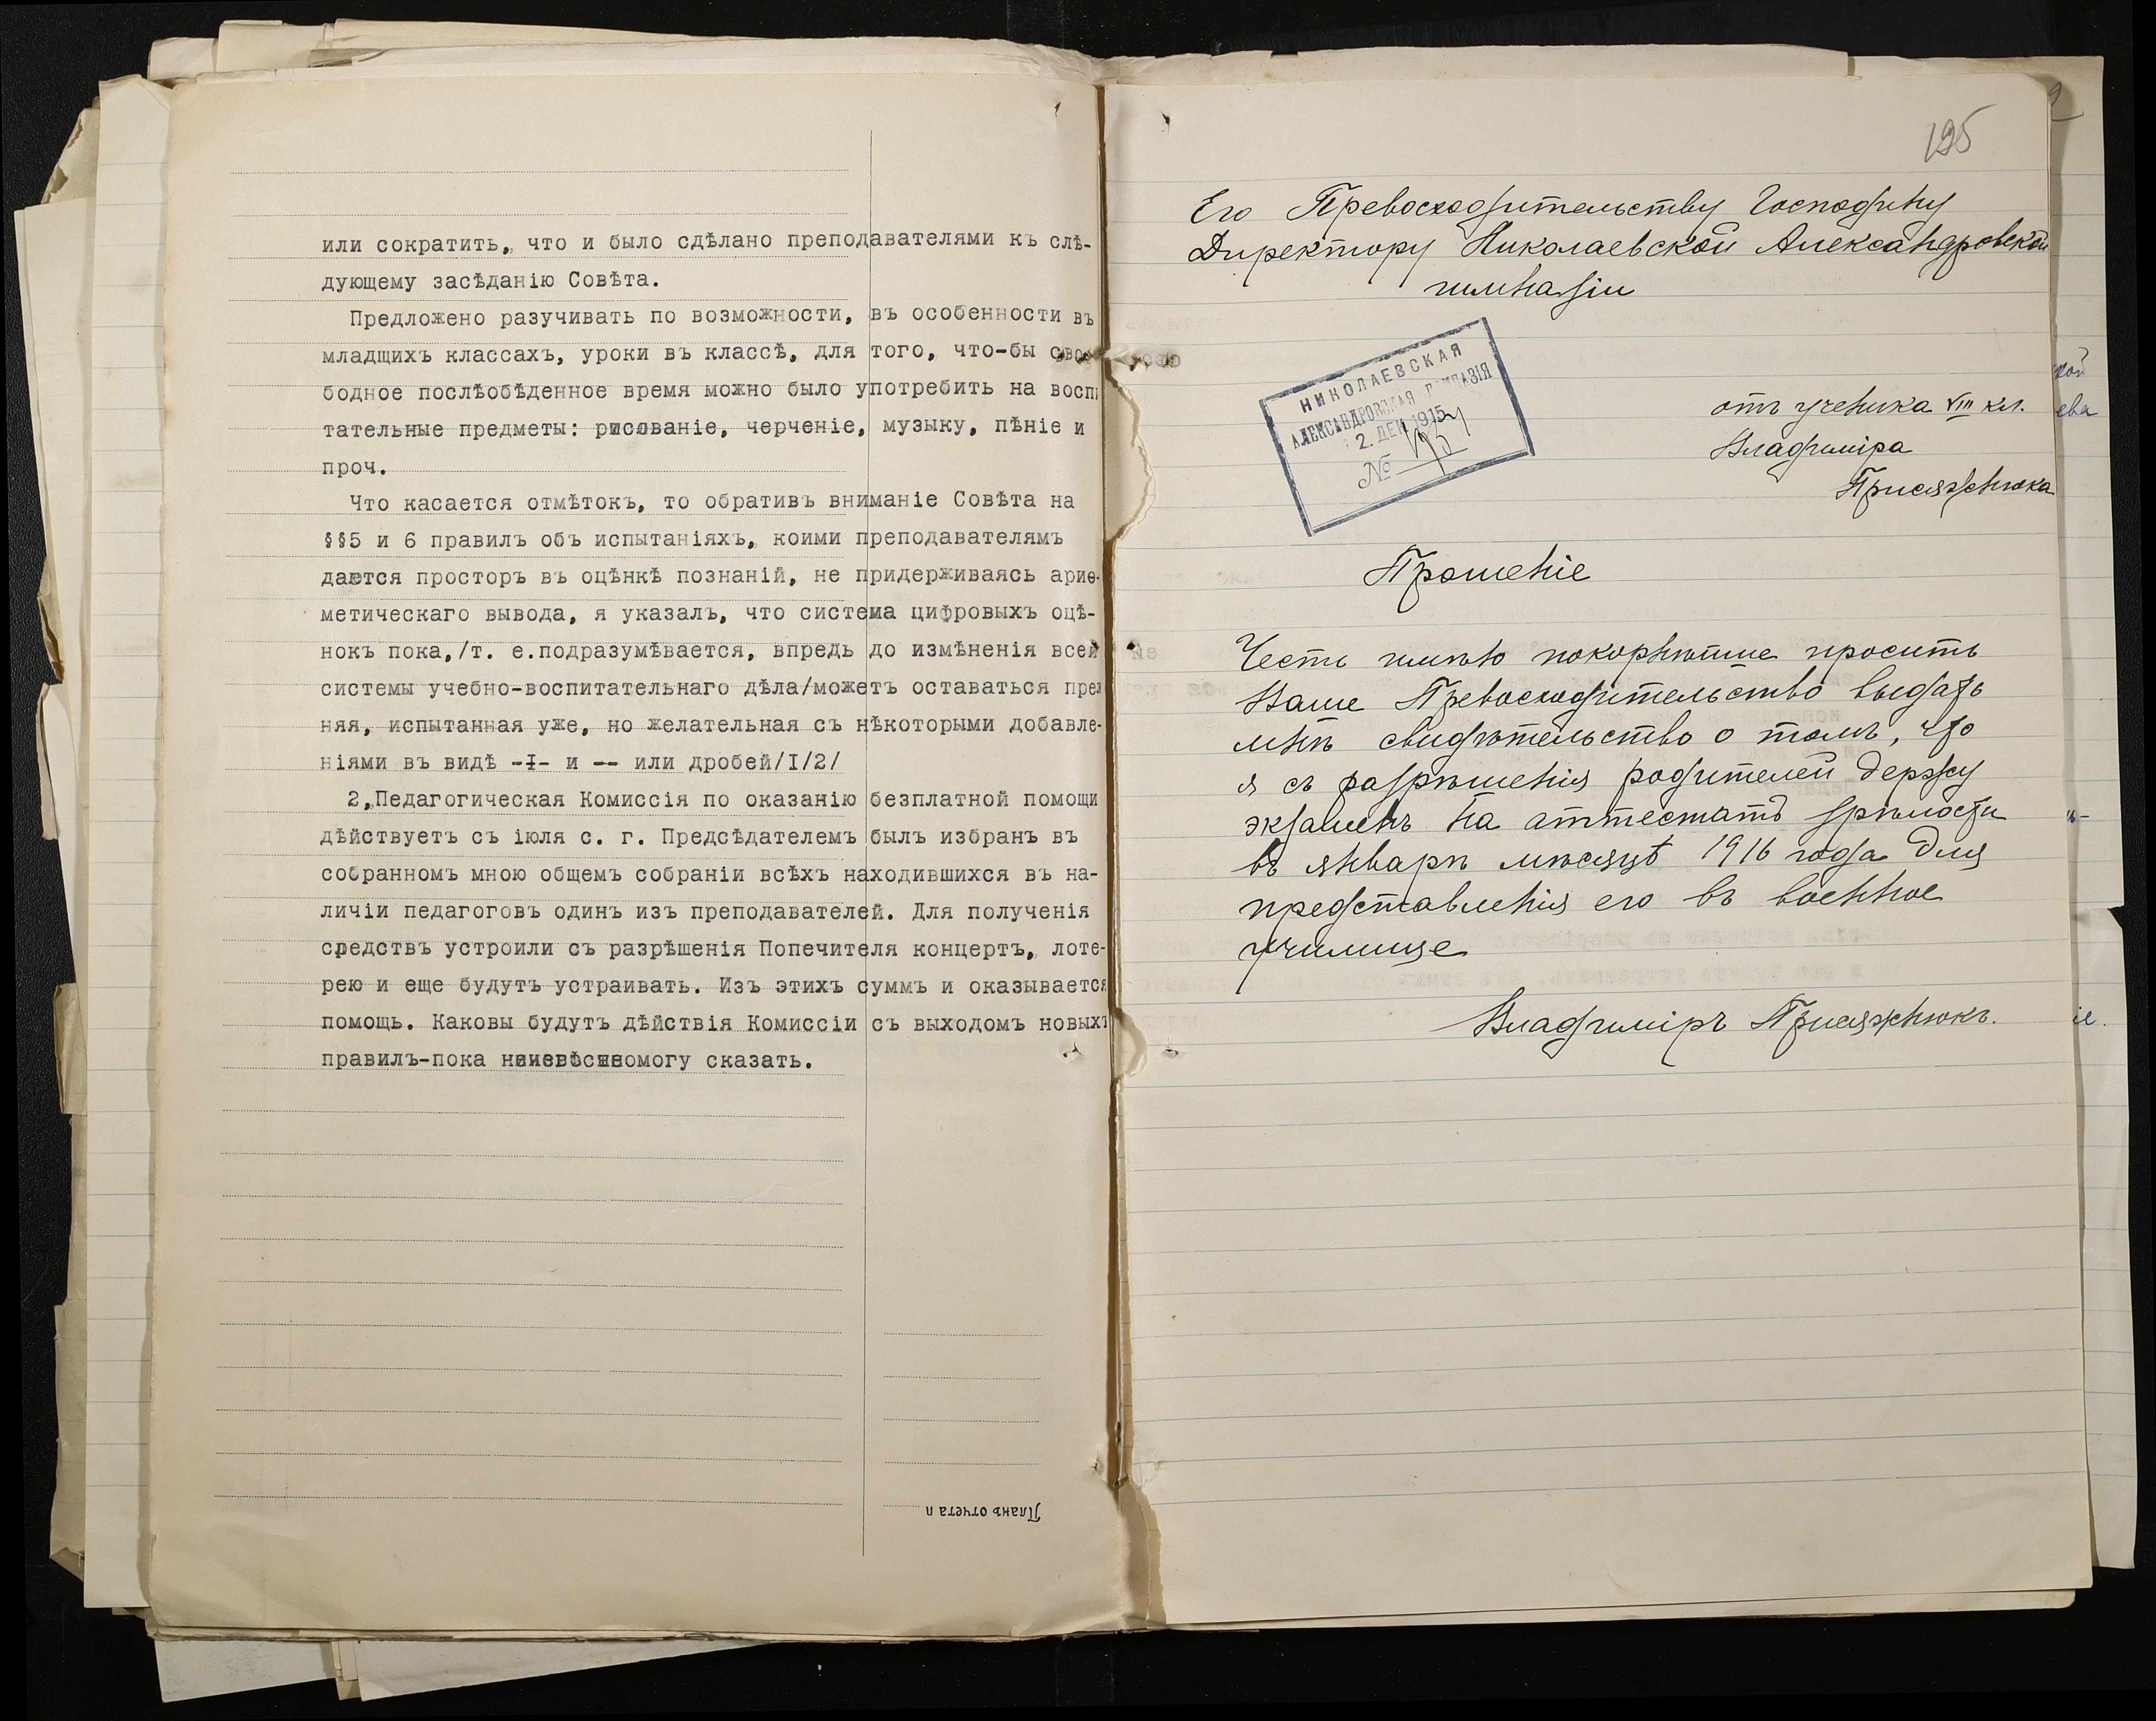 или сократить, что и было сдѣлано преподавателями къ слѣ-
дующему засѣданію Совѣта.
Предложено разучивать по возможности, въ особенности въ
младшихъ классахъ, уроки въ классѣ, для того, что-бы сво
бодное послѣобѣденное время можно было употребить на воспи
тательные предметы: рисованіе, черченіе, музыку, пѣніе и
проч.
Что касается отмѣтокъ, то обративъ вниманіе Совѣта на
§§5 и 6 правилъ объ испытаніяхъ, коими преподавателямъ
дается просторъ въ оцѣнкѣ познаній, не придерживаясь ариѳ-
метическаго вывода, я указалъ, что система цифровыхъ оцѣ-
нокъ пока,/т. е.подразумѣвается, впредь до измѣненія всей
системы учебно-воспитательнаго дѣла/можетъ оставаться преж
няя, испытанная уже, но желательная съ нѣкоторыми добавле-
ніями въ видѣ -I- и -- или дробей/I/2/
2,Педагогическая Комиссія по оказанію безплатной помощи
дѣйствуетъ съ іюля с. г. Предсѣдателемъ былъ избранъ въ
собранномъ мною общемъ собраніи всѣхъ находившихся въ на-
личіи педагоговъ одинъ изъ преподавателей. Для полученія
средствъ устроили съ разрѣшенія Попечителя концертъ, лоте-
рею и еще будутъ устраивать. Изъ этихъ суммъ и оказывается
помощь. Каковы будутъ дѣйствія Комиссіи съ выходомъ новыхъ
правилъ-пока могу сказать.
Планъ отчета п
195
Его Превосходительству Господину
Директору Николаевской Александровской
гимназіи
НИКОЛАЕВСКАЯ
АЛЕКСАНДРОВСКАЯ ГИМНАЗІЯ
2. ДЕК 1915
№
отъ ученика VIII кл.
Владиміра
Присяжнюка
Прошеніе
Честь имѣю покорнѣйше просить
Ваше Превосходительство выдать
мнѣ свидѣтельство о томъ, что
я съ разрѣшенія родителей держу
экзаменъ на аттестатъ зрѣлости
въ январѣ мѣсяцѣ 1916 года для
представленія его въ военное
училище
Владиміръ Присяжнюкъ.
кой
ева